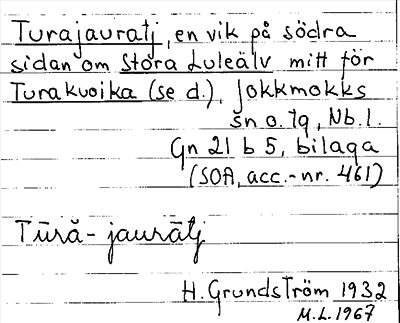 Turajauratj, en vik på södra
sidan om Stora Luleälv mitt för
Turakuoika (se d.), Jokkmokks
sn o. tg, Nb. l.
Gn 21 b 5, bilaga
(SOA, acc.-nr. 461)
Tūră-jaurātj
H. Grundström 1932
M.L. 1967